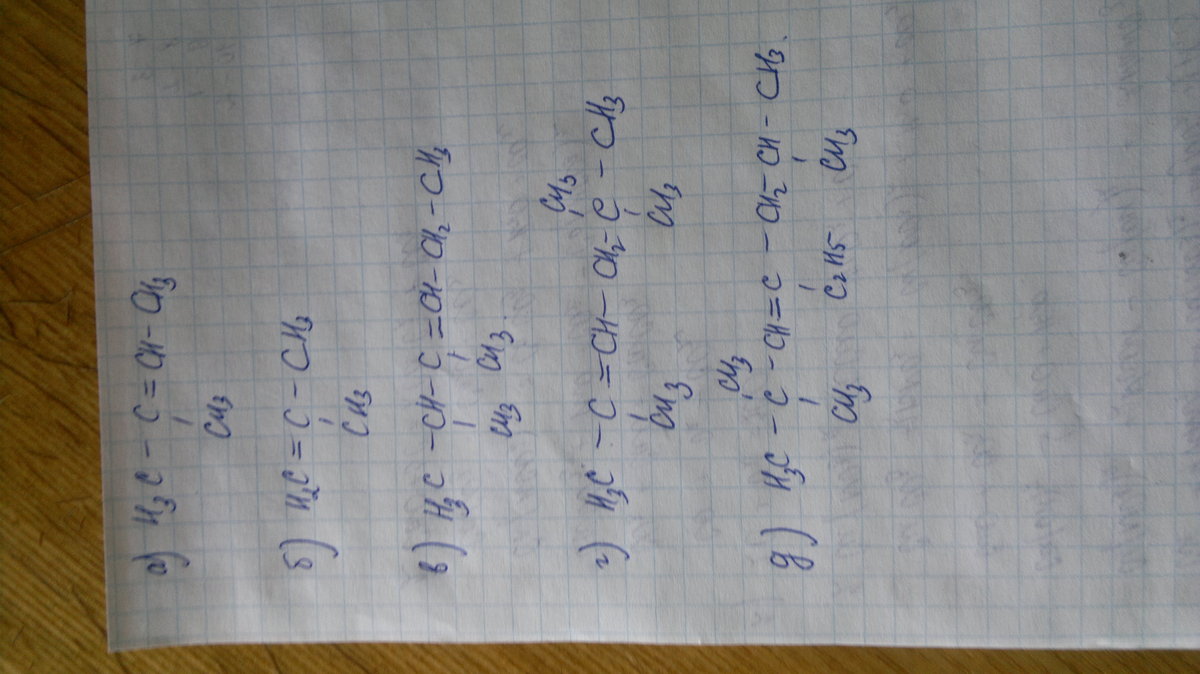 а) H₃C - C = CH - CH₃
CH₃
б) H₂C = C - CH₃
CH₃
в) H₃C - CH - C = CH - CH₂ - CH₃
CH₃ CH₃.
CH₃
г) H₃C - C = CH - CH₂ - C - CH₃
CH₃ CH₃
CH₃
д) H₃C - C - CH = C - CH₂ - CH - CH₃.
CH₃ C₂H₅ CH₃